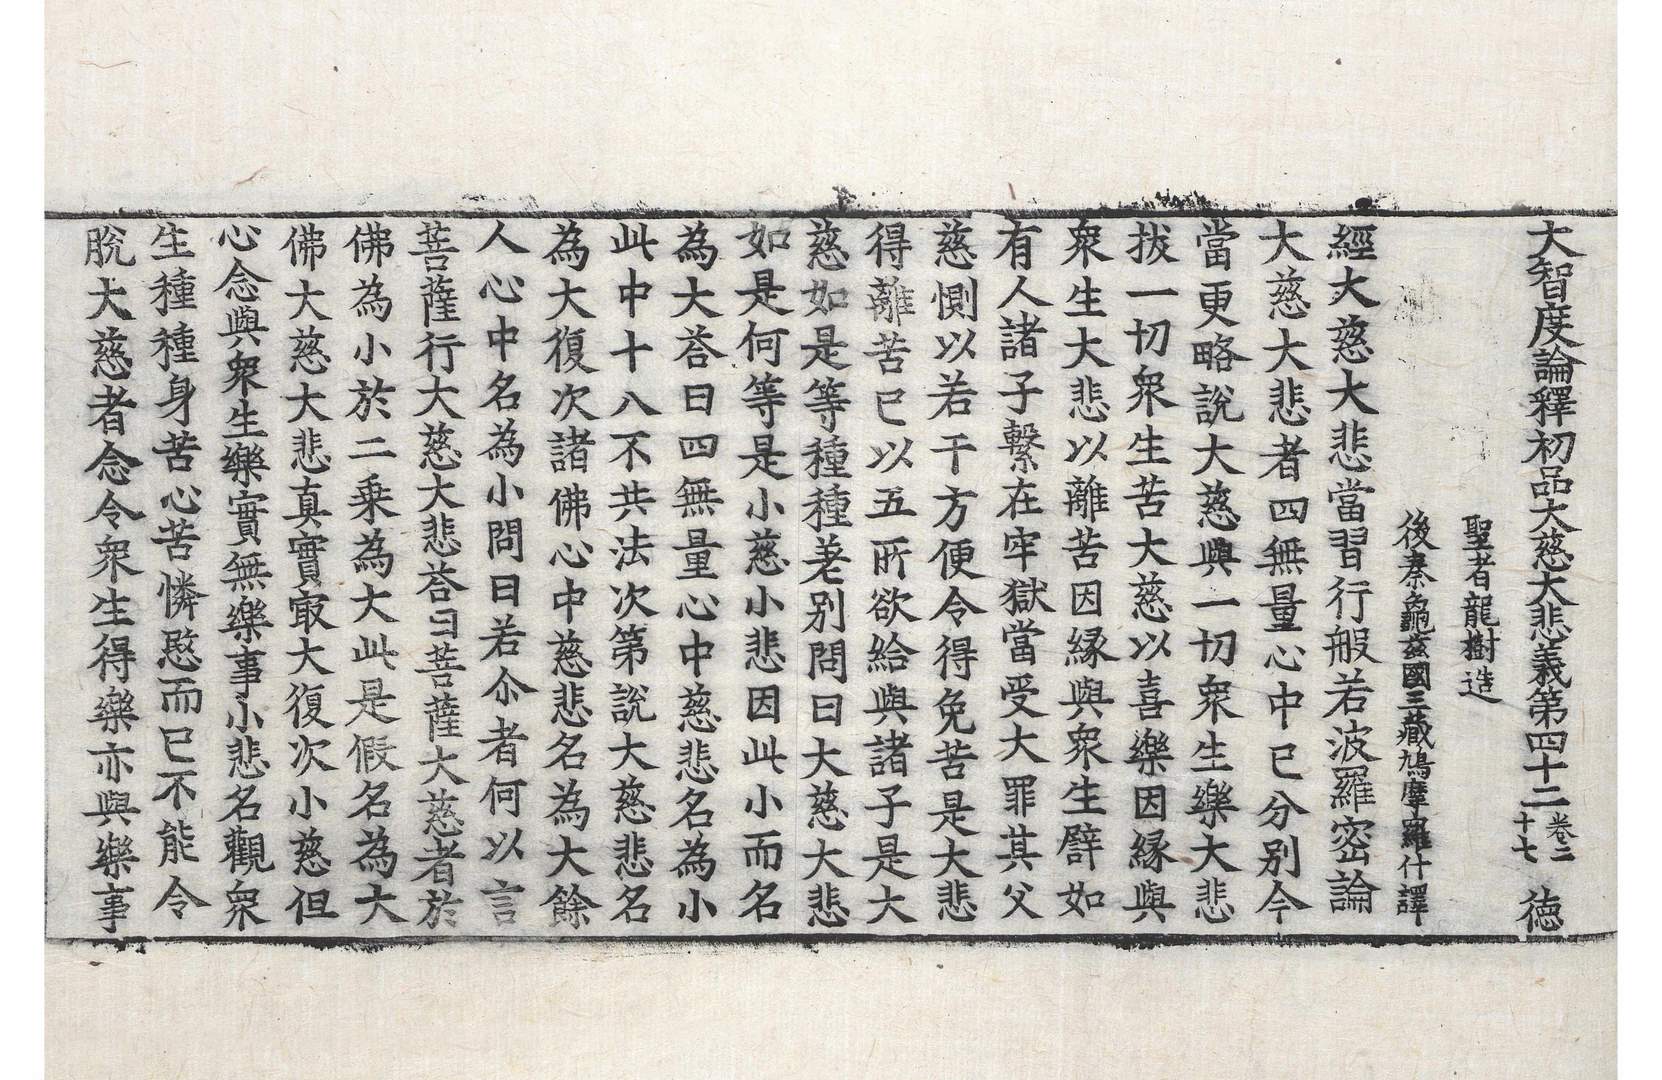 大智度論釋初品大慈大悲義第四十二卷二十七 德
聖者龍樹造
後秦龜茲國三藏鳩摩羅什譯
經大慈大悲當習行般若波羅密論
大慈大悲者四無量心中已分別今
當更略說大慈與一切衆生樂大悲
拔一切衆生苦大慈以喜樂因緣與
衆生大悲以離苦因緣與衆生譬如
有人諸子繫在牢獄當受大罪其父
慈惻以若干方便令得免苦是大悲
得離苦已以五所欲給與諸子是大
慈如是等種種差別問曰大慈大悲
如是何等是小慈小悲因此小而名
為大荅曰四無量心中慈悲名為小
此中十八不共法次第說大慈悲名
為大復次諸佛心中慈悲名為大餘
人心中名為小問曰若尒者何以言
菩薩行大慈大悲荅曰菩薩大慈者於
佛為小於二乗為大此是假名為大
佛大慈大悲真實㝡大復次小慈但
心念與衆生樂實無樂事小悲名觀衆
生種種身苦心苦憐愍而已不能令
脫大慈者念令衆生得樂亦與樂事